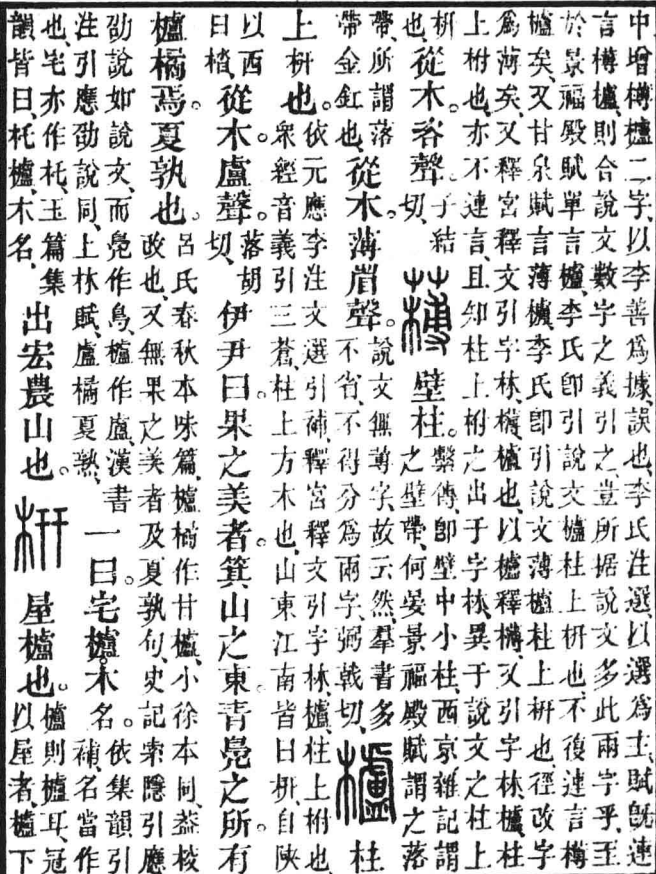 中增欂櫨二字、以李善爲據、誤也、李氏注選、以選爲主、賦旣連
言欂櫨、則合說文數字之義引之、豈所据說文多此兩字乎、至
於景福殿賦單言櫨、李氏卽引說文櫨柱上枅也、不復連言欂
櫨矣、又甘泉賦言薄櫨、李氏卽引說文薄櫨柱上枅也、徑改字
爲薄矣、又釋宮釋文引字林、欂、櫨也、以櫨釋欂、又引字林、櫨、柱
上柎也、亦不連言、且知柱上柎之出于字林、異于說文之柱上
枅也、從木咨聲。子結切、欂 壁柱。繫傳、卽壁中小柱、西京雜記謂之壁帶、何晏景福殿賦謂之落
帶、所謂落帶金釭也、從木薄省聲。說文無字、故云然、羣書多不省、不得分爲兩字、弼戟切、櫨 柱
上枅也。依元應李注文選引補、釋宮釋文引字林、櫨、柱上柎也、衆經音義引三蒼、柱上方木也、山東江南皆曰枅、自陝
以西曰㭼、從木盧聲。落胡切、伊尹曰。果之美者。箕山之東。青鳧之所。有
櫨橘焉。夏孰也。呂氏春秋本味篇、櫨橘作甘櫨、小徐本同、葢校改也、又無果之美者及夏孰句、史記索隱引應
劭說如說文、而鳧作鳥、櫨作盧、漢書注引應劭說同、上林賦、盧橘夏熟、一曰。宅櫨。木名。依集韻引補、名當作
也、宅亦作杔、玉篇集韻皆曰、杔櫨、木名、出宏農山也。枅 屋櫨也。櫨則櫨耳、冠以屋者、櫨下